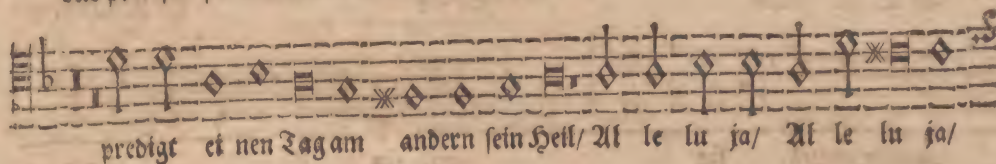 predigt ei nen Tag am andern sein Heil/ Al le lu ja/ Al le lu ja/